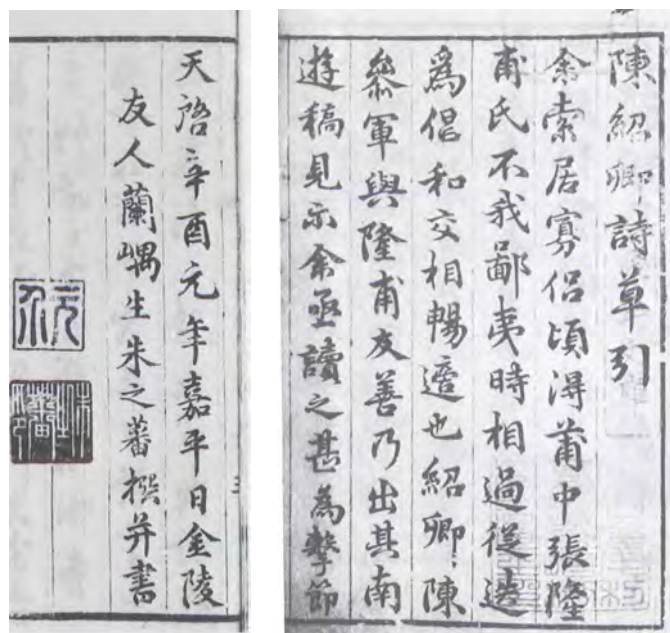 陳紹卿詩草引
余索居寡侶頃淂莆中張隆
甫氏不我鄙夷時相過從迭
爲倡和交相暢適也紹卿陳
叅軍與隆甫友善乃出其南
遊稿見示余亟讀之甚為擊節
天啓辛酉元年嘉平日金陵
友人蘭嵎生朱之蕃撰并書
元介
朱之蕃印